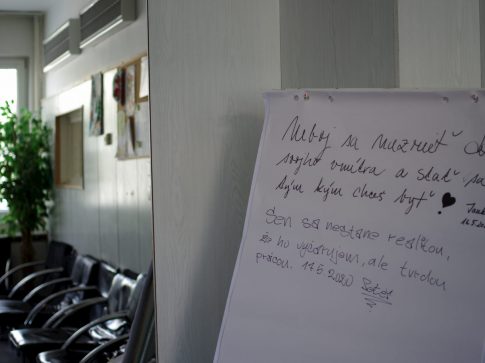 Neboj sa nazrieť do
svojho vnútra a stať sa
tým kým chceš byť!
Sen sa nestane realitou,
že ho vyčarujem, ale tvrdou
prácou. 17.5 2020